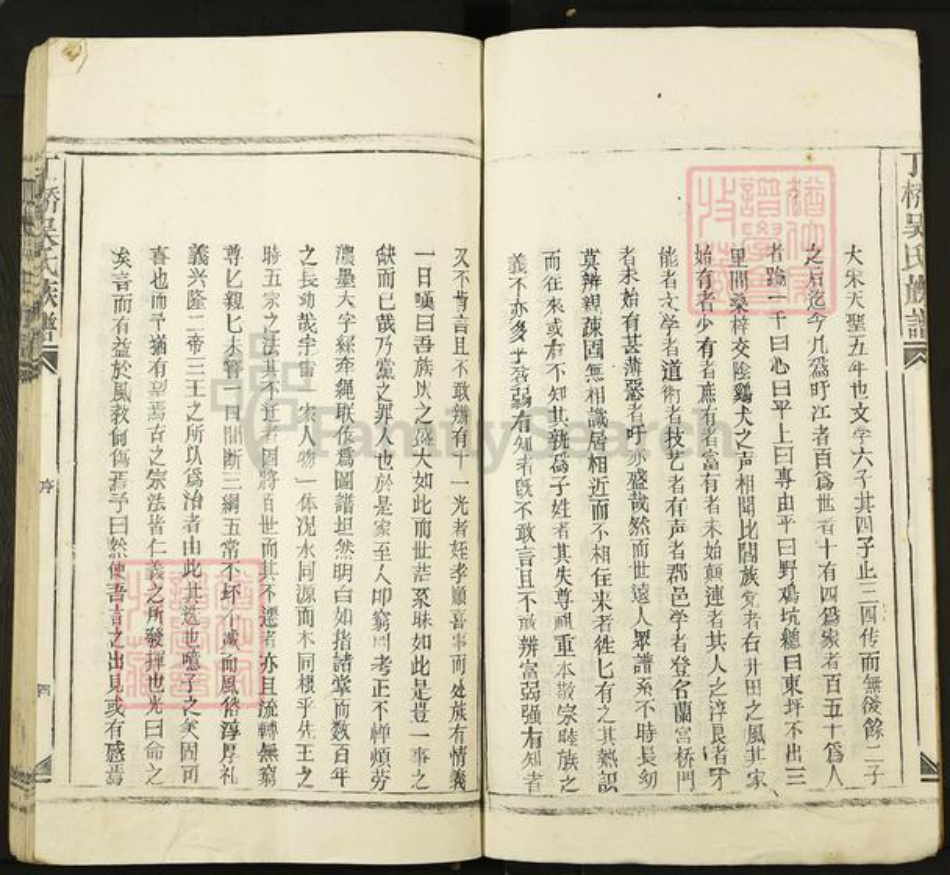 丁橋吳氏族譜
大宋天聖五年也文学六子其四子止三四传而無後餘二子
之后迄今凡為盱江者百為世者十有四為家者百五十為人
者踰一千曰心曰平上曰專由平曰野鳮坑總曰東坪不出三
里間桑梓交陰鷄犬之声相聞比閭族党者右井田之風其家
始有者少有者庶有者富有者未始顛連者其人之淳良者才
能者文学者道術者技艺者有声者郡邑学者登名蘭宮桥門
者未始有甚薄惡者吁亦盛哉然而世遠人眾譜系不時長幼
莫辨親疎固無相識居相近而不相往来者徃匕有之其熟認
而往来或有不知其孰為子姓者其失尊祖重本敬宗睦族之
義不亦多乎富弱有知者既不敢言且不敢辨富弱强有知者
又不肯言且不敢辨有十一光者姪孝順喜事而处族有情義
一日嘆曰吾族以之盛大如此而世茫系昧如此是豈一事之
缺而已哉乃黨之罪人也於是家至人叩窮問考正不憚煩劳
濃墨大字經牵绳联作為圖譜坦然明白如指諸掌而数百年
之長幼哉宇宙一家人物一体况水同源而木同根乎先王之
時五宗之法其不迁者固將百世而其不遷者亦且流轉無窮
尊匕親匕未嘗一日間断三綱五常不坏不滅而風俗淳厚礼
義兴隆二帝三王之所以為治者由此其选也噫子之笑固可
喜也而予猶有望焉古之宗法皆仁義之所發揮也光曰命之
矣言而有益於風教何傷焉予曰然使吾言之出見或有感焉
丁橋吳氏族譜
序
四
FamilySearch